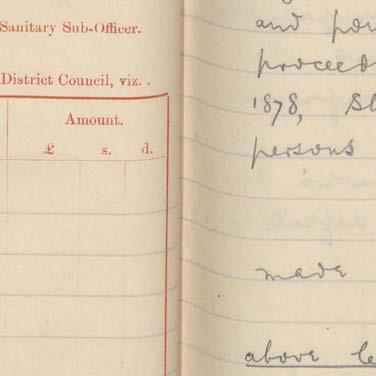 Sanitary Sub-Officer.
District Council, viz. .
Amount.
£ s. d.
and
proceed
1878,
persons
made
above